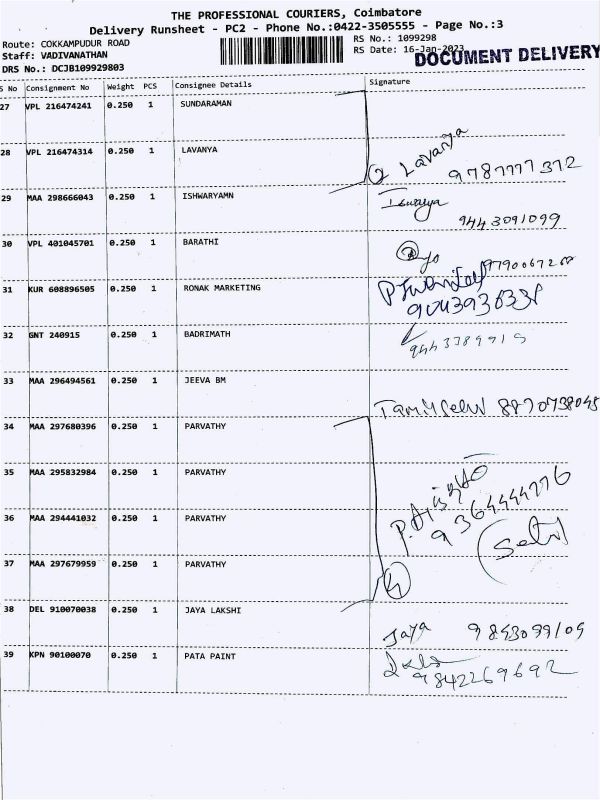 THE PROFESSIONAL COURIERS, Coimbatore
Delivery Runsheet - PC2 - Phone No.:0422-3505555 - Page No.:3
Route: COKKAMPUDUR ROAD
Staff: VADIVANATHAN
DRS No.: DCJB109929803
RS No.: 1099298
RS Date: 16-Jan-2023
DOCUMENT DELIVERY
S No Consignment No Weight PCS Consignee Details Signature
27 VPL 216474241 0.250 1 SUNDARAMAN
28 VPL 216474314 0.250 1 LAVANYA
2 Lavanya
9787777372
29 MAA 298666043 0.250 1 ISHWARYAMN
9443091099
30 VPL 401045701 0.250 1 BARATHI
31 KUR 608896505 0.250 1 RONAK MARKETING
32 GNT 240915 0.250 1 BADRIMATH
33 MAA 296494561 0.250 1 JEEVA BM
Tamil Selvi 8870738045
34 MAA 297680396 0.250 1 PARVATHY
35 MAA 295832984 0.250 1 PARVATHY
36 MAA 294441032 0.250 1 PARVATHY
9364444776
37 MAA 297679959 0.250 1 PARVATHY
4
38 DEL 910070038 0.250 1 JAYA LAKSHI
Jaya 9843099109
39 KPN 90100070 0.250 1 PATA PAINT
9842269692